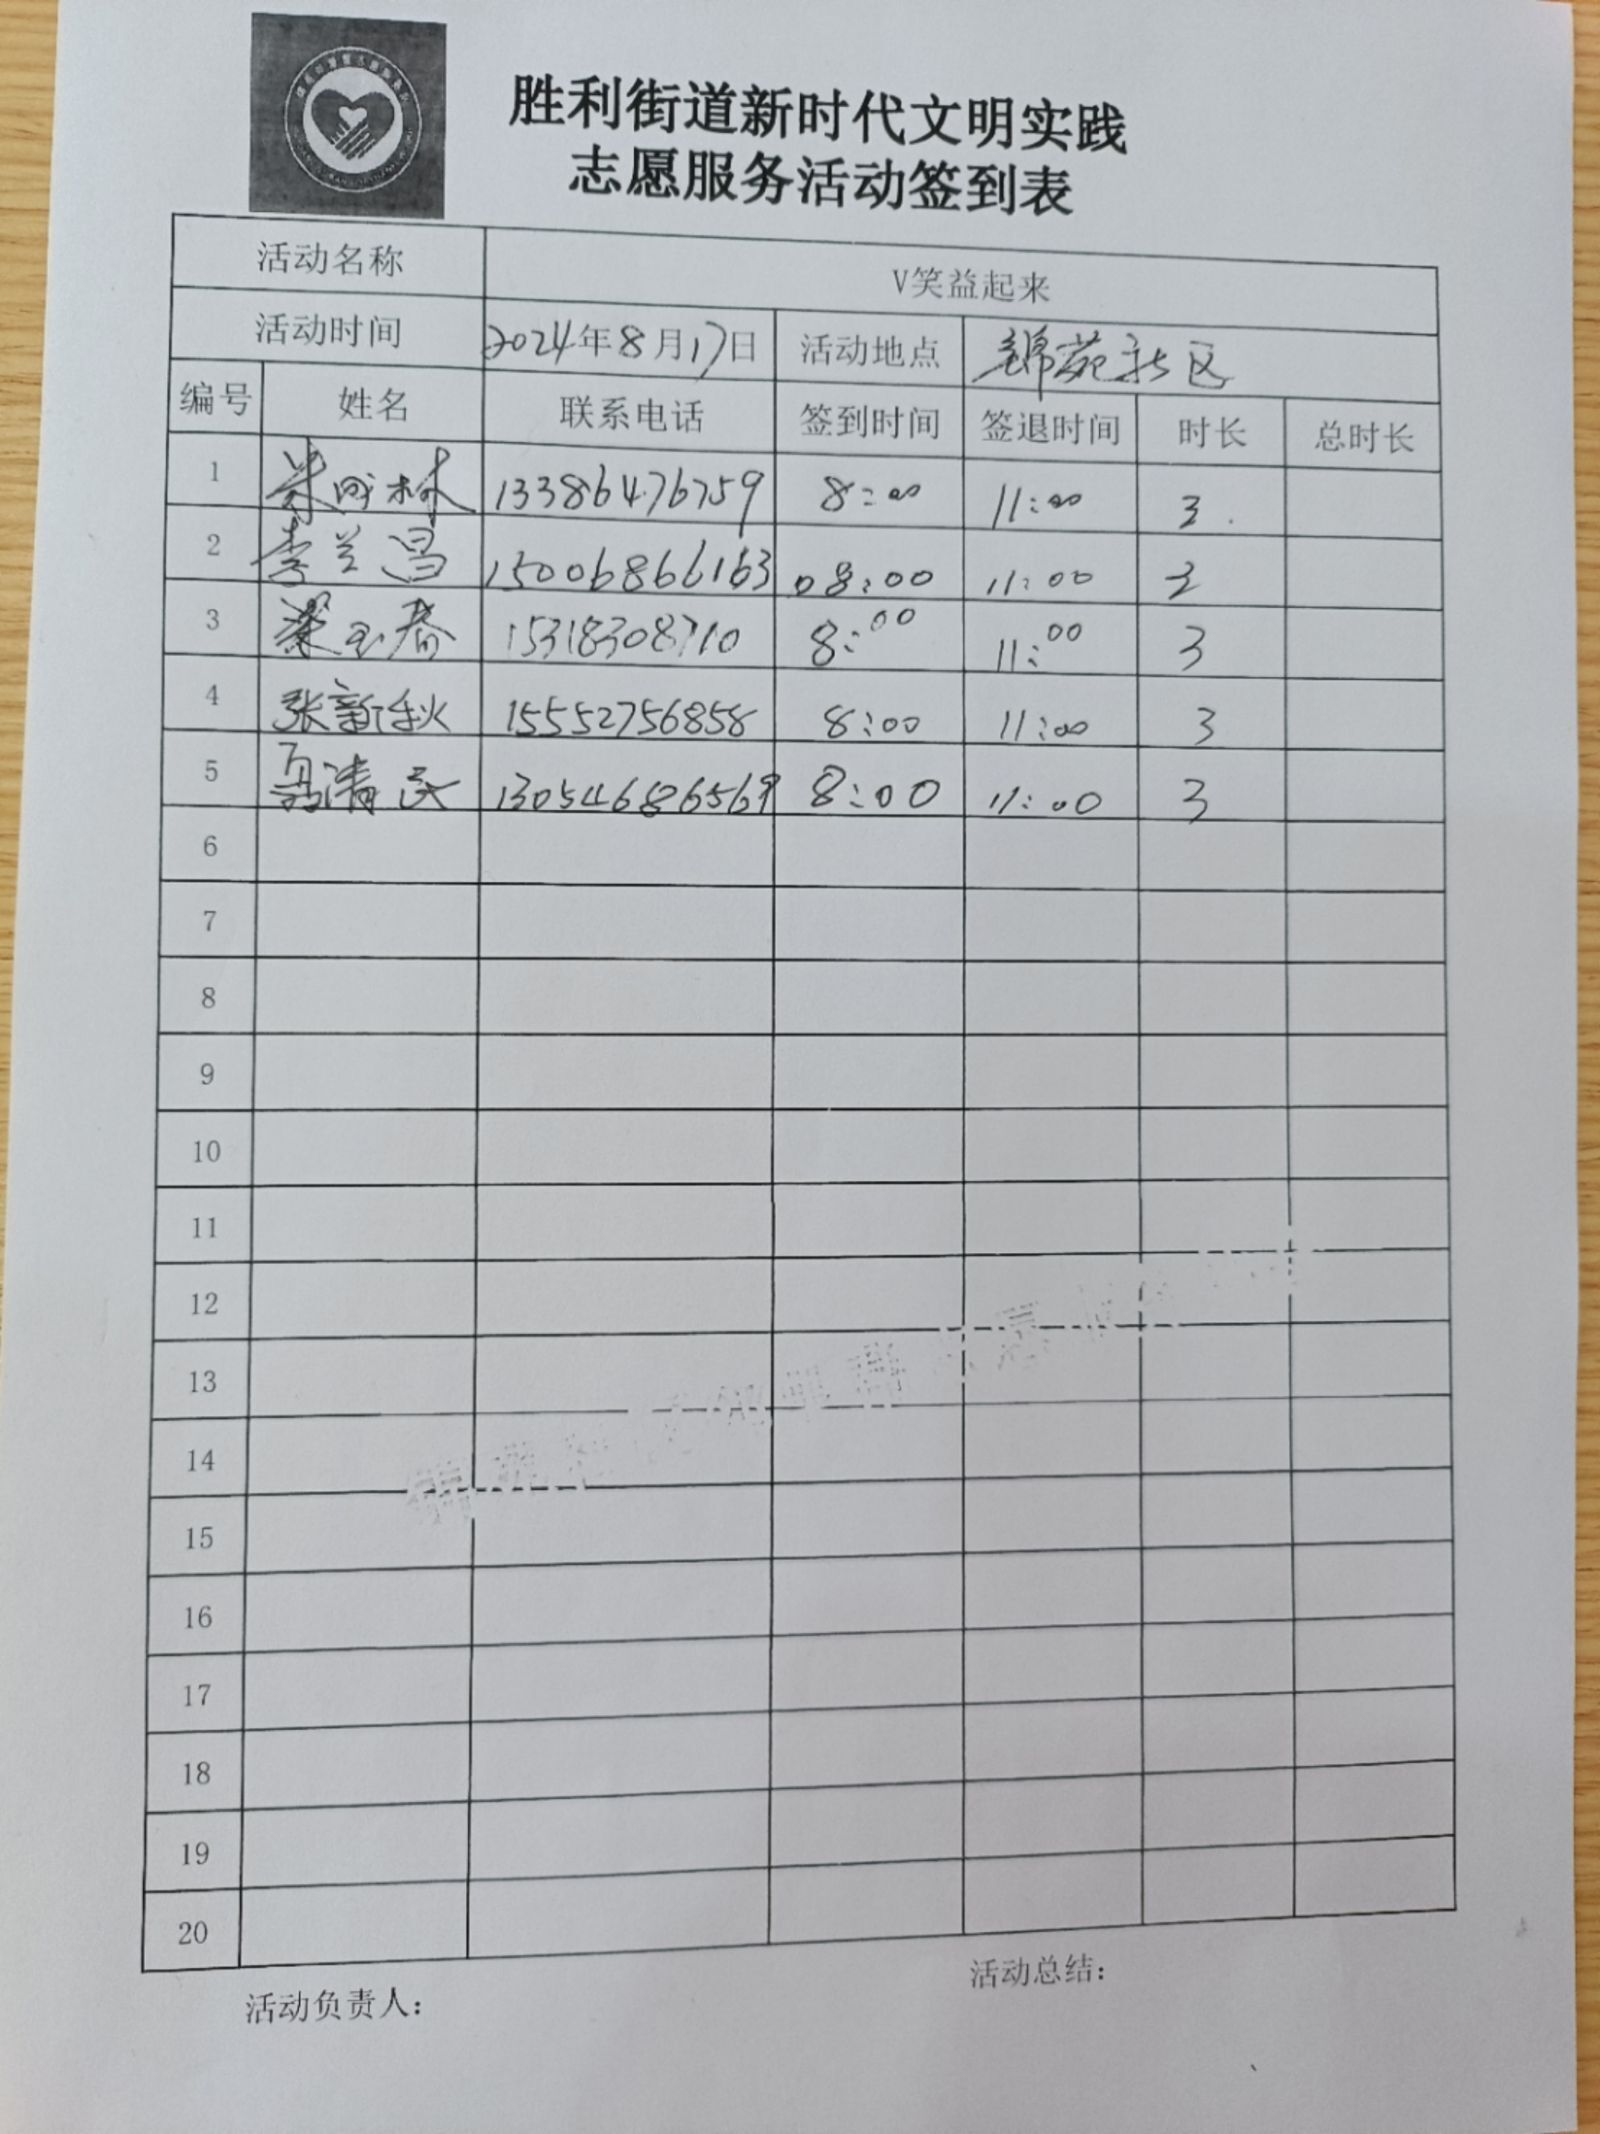 胜利街道新时代文明实践
志愿服务活动签到表
活动名称 V笑益起来
活动时间 2024年8月17日 活动地点 锦苑新区
编号 姓名 联系电话 签到时间 签退时间 时长 总时长
1 林 13386476759 8:00 11:00 3.
2 李兰昌 15006866163 08:00 11:00 3
3 梁玉春 15318308710 8:00 11:00 3
4 张新秋 15552756858 8:00 11:00 3
5 清民 13054686569 8:00 11:00 3
6
7
8
9
10
11
12
13
14
15
16
17
18
19
20
活动负责人: 活动总结: